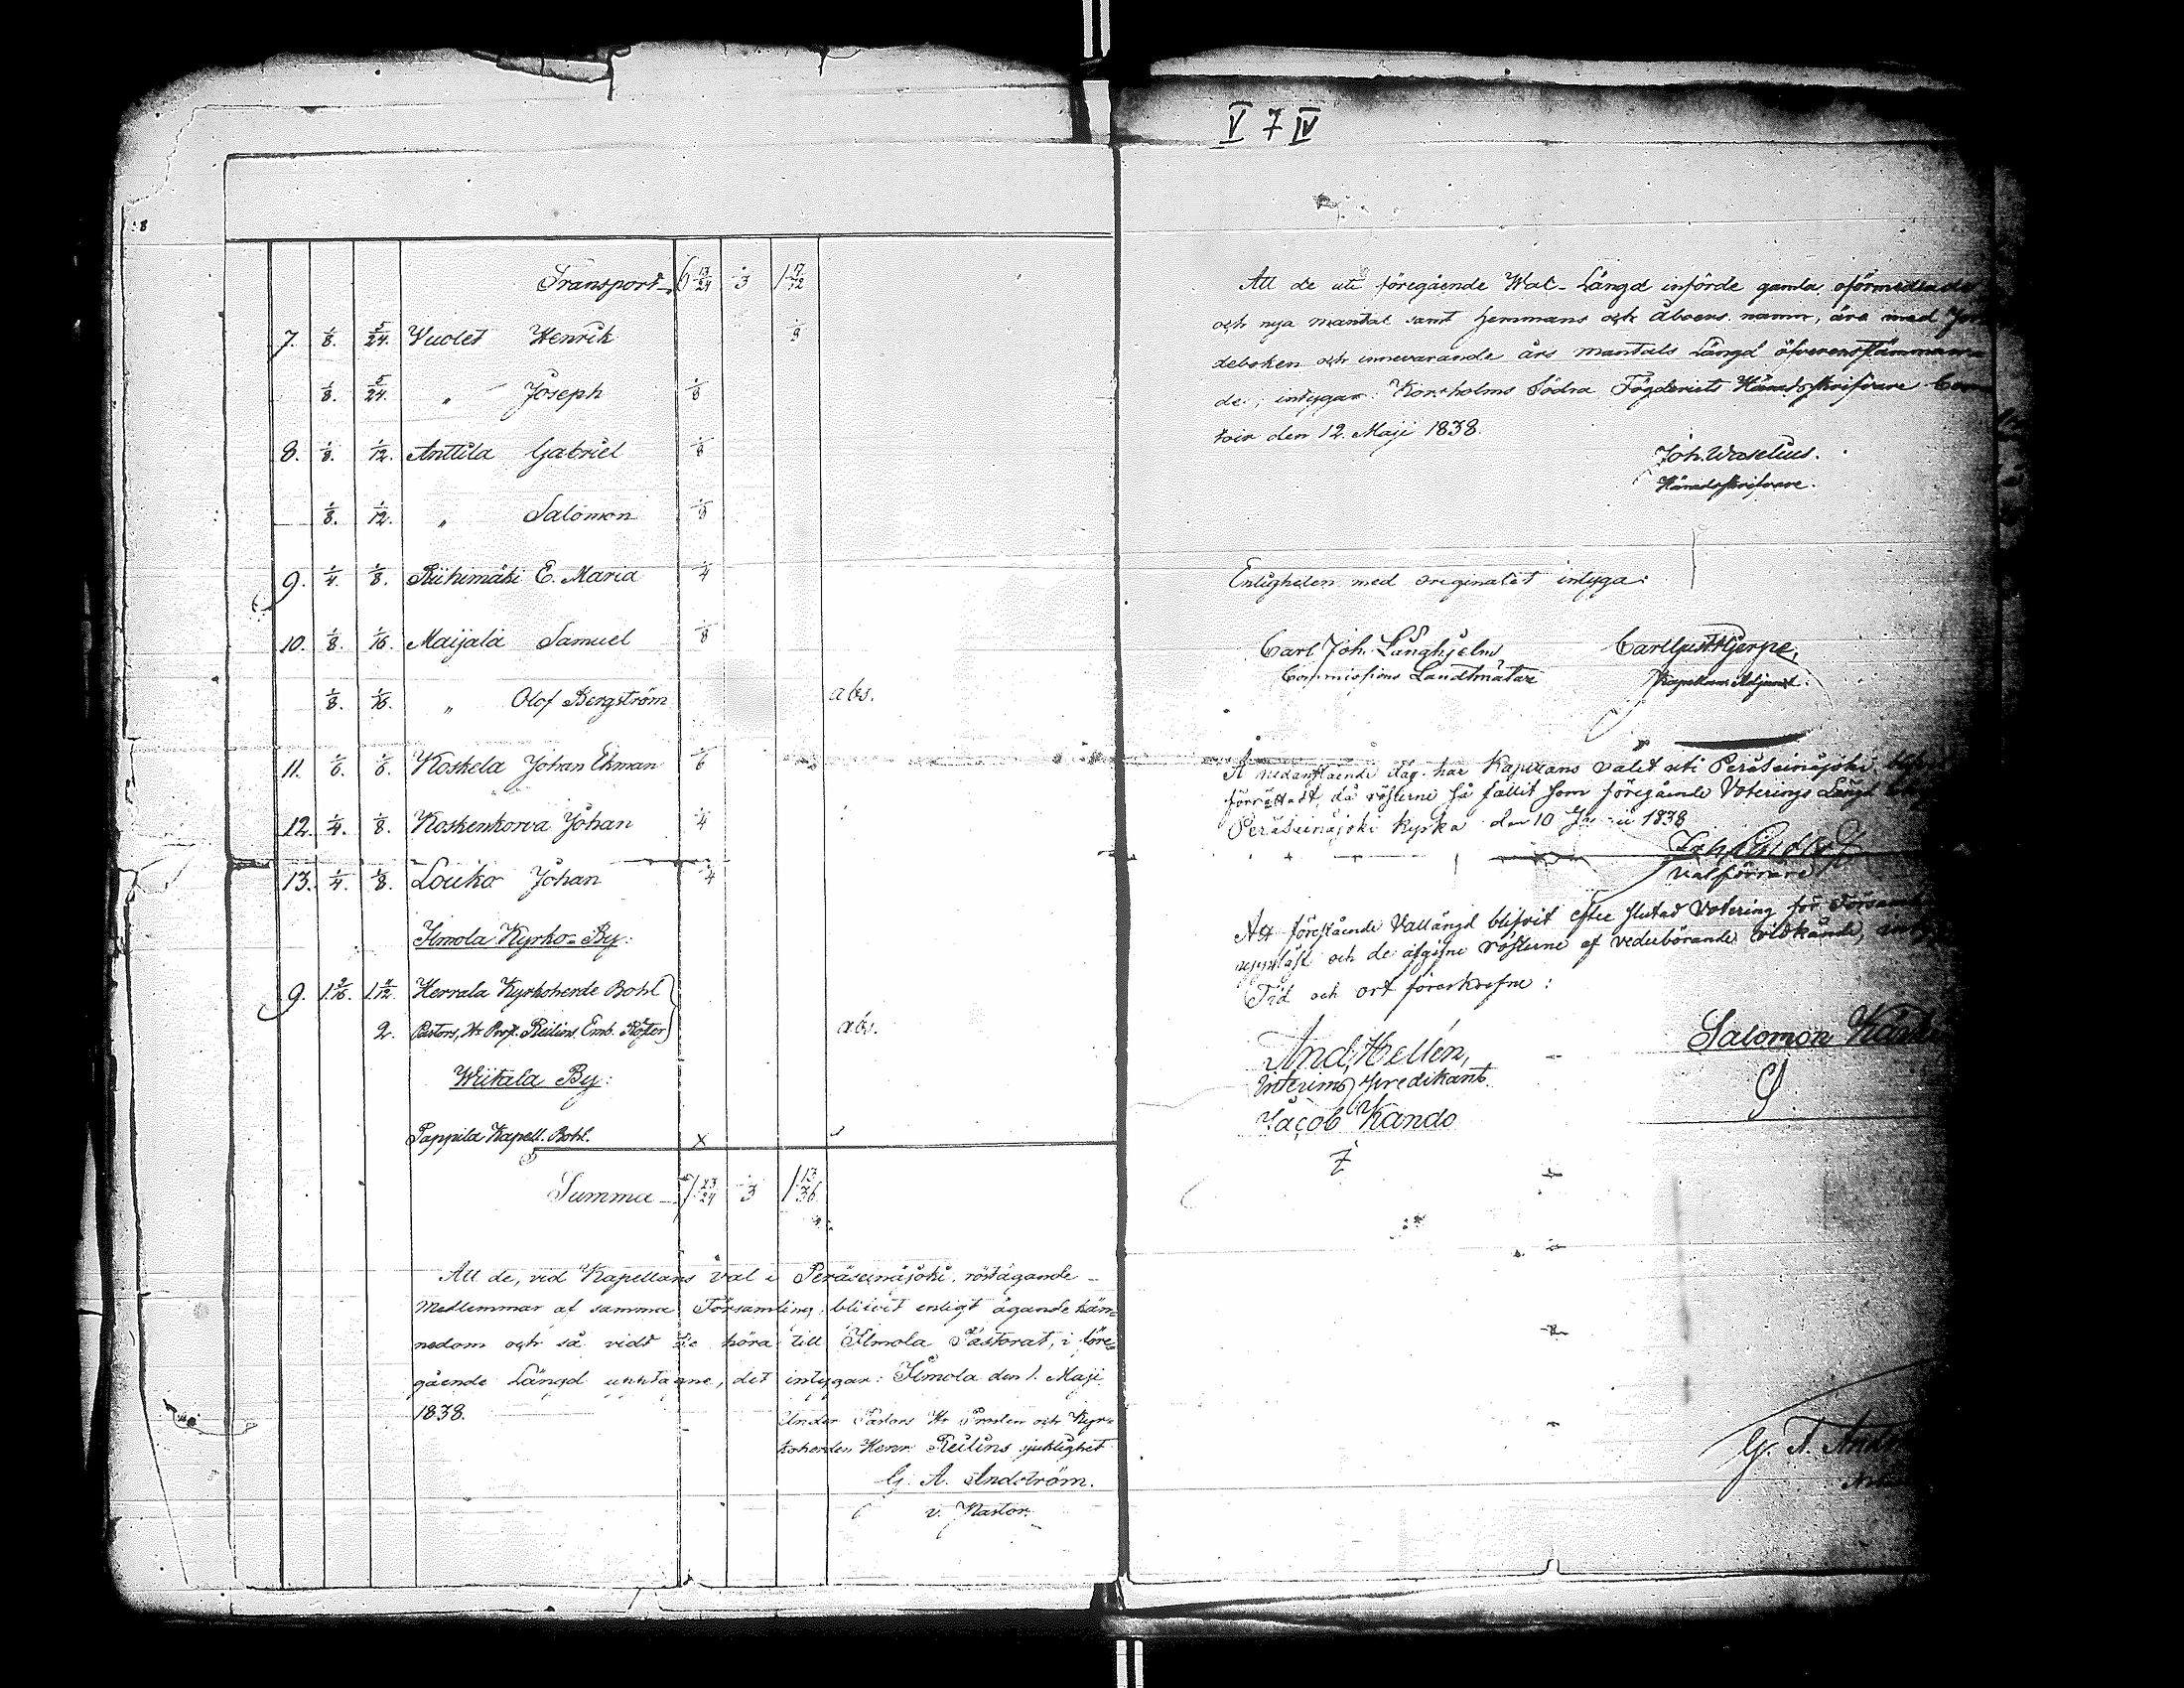 :8
Transport 6 13/24 1/3 1 17/72
7. 1/8. 5/24. Wuolet Henrik 1/9
1/8. 5/24. " Joseph 1/8
8. 1/8. 1/12. Anttila Gabriel 1/8
1/8. 1/12. " Salomon 1/8
9. 1/4. 1/8. Riihimäki E. Maria 1/4
10. 1/8. 1/16. Maijala Samuel 1/8
1/8. 1/16. " Olof Bergström abs.
11. 1/6. 1/6. Koskela Johan Ekman 1/6
12. 1/4. 1/8. Koskenkorva Johan 1/4
13. 1/4. 1/8. Louko Johan 1/4
Ilmola Kyrko=By:
9. Herrala Kyrkoherde Bohl
2. Pastors, Hr Prost. Reilins Emb. Röster abs.
Wiitala By:
Pappila Kapell. Bohl. x
Summa 7 23/24 1/3 1 13/36
Att de, vid Kapellans val i Peräseinäjoki, röstägande
Medlemmar af samma Församling blifvit enligt ägande kän=
nedom och så vidt de höra till Ilmola Pastorat, i före=
gående Längd upptagne, det intygar: Ilmola den 1. Maji
1838.
Under Pastors Hr Prosten och Kyr=
koherden Herr Reilins sjuklighet
G. A. Andström.
v. Pastor.
V 7 IV
Att de uti föregående Wal-Längd införde gamla oförmedlade
och nya mantal samt hemmans och Åboens namn, äro med Jor
deboken och innevarande års mantals Längd öfverensstämman
de; intygar: Korsholms Södra Fögderiets Häradsskrifvare Con
toir den 12. Maji 1838.
Joh. Waselius.
Häradsskrifvare.
Enligheten med originalet intyga:
Carl Joh. Långhjelm
Commissions Landtmätare
Carl Gust Hjerpe,
Kapellans Adjunct.
Å nedanstående dag har Kapellans valet uti Peräseinäjoki
förrättadt, då rösterne så fallit som föregående Voterings Längd
Peräseinäjoki Kyrka den 10 Junii 1838
Valförrare
Att förestående Vallängd blifvit efter slutad Votering för
uppläst och de afgifne rösterne af vederbörande vidkände,
Tid och ort föreskrefne:
And. Hellén,
Interims predikant.
Jacob Kando
Salomon
G. A.